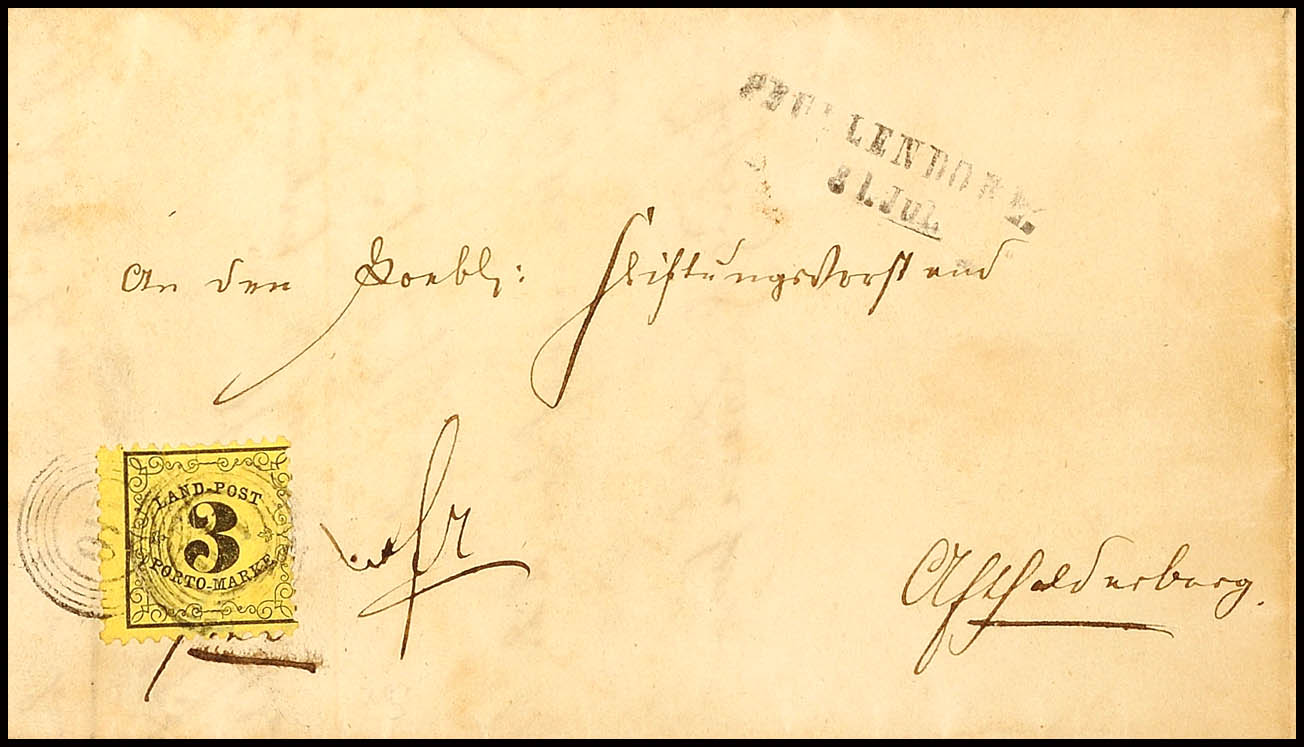 PFULLENDORF.
31. Jul.
An den Loebl: Stiftungsvorstand
LAND-POST
3
PORTO-MARKE
Aftholderberg.